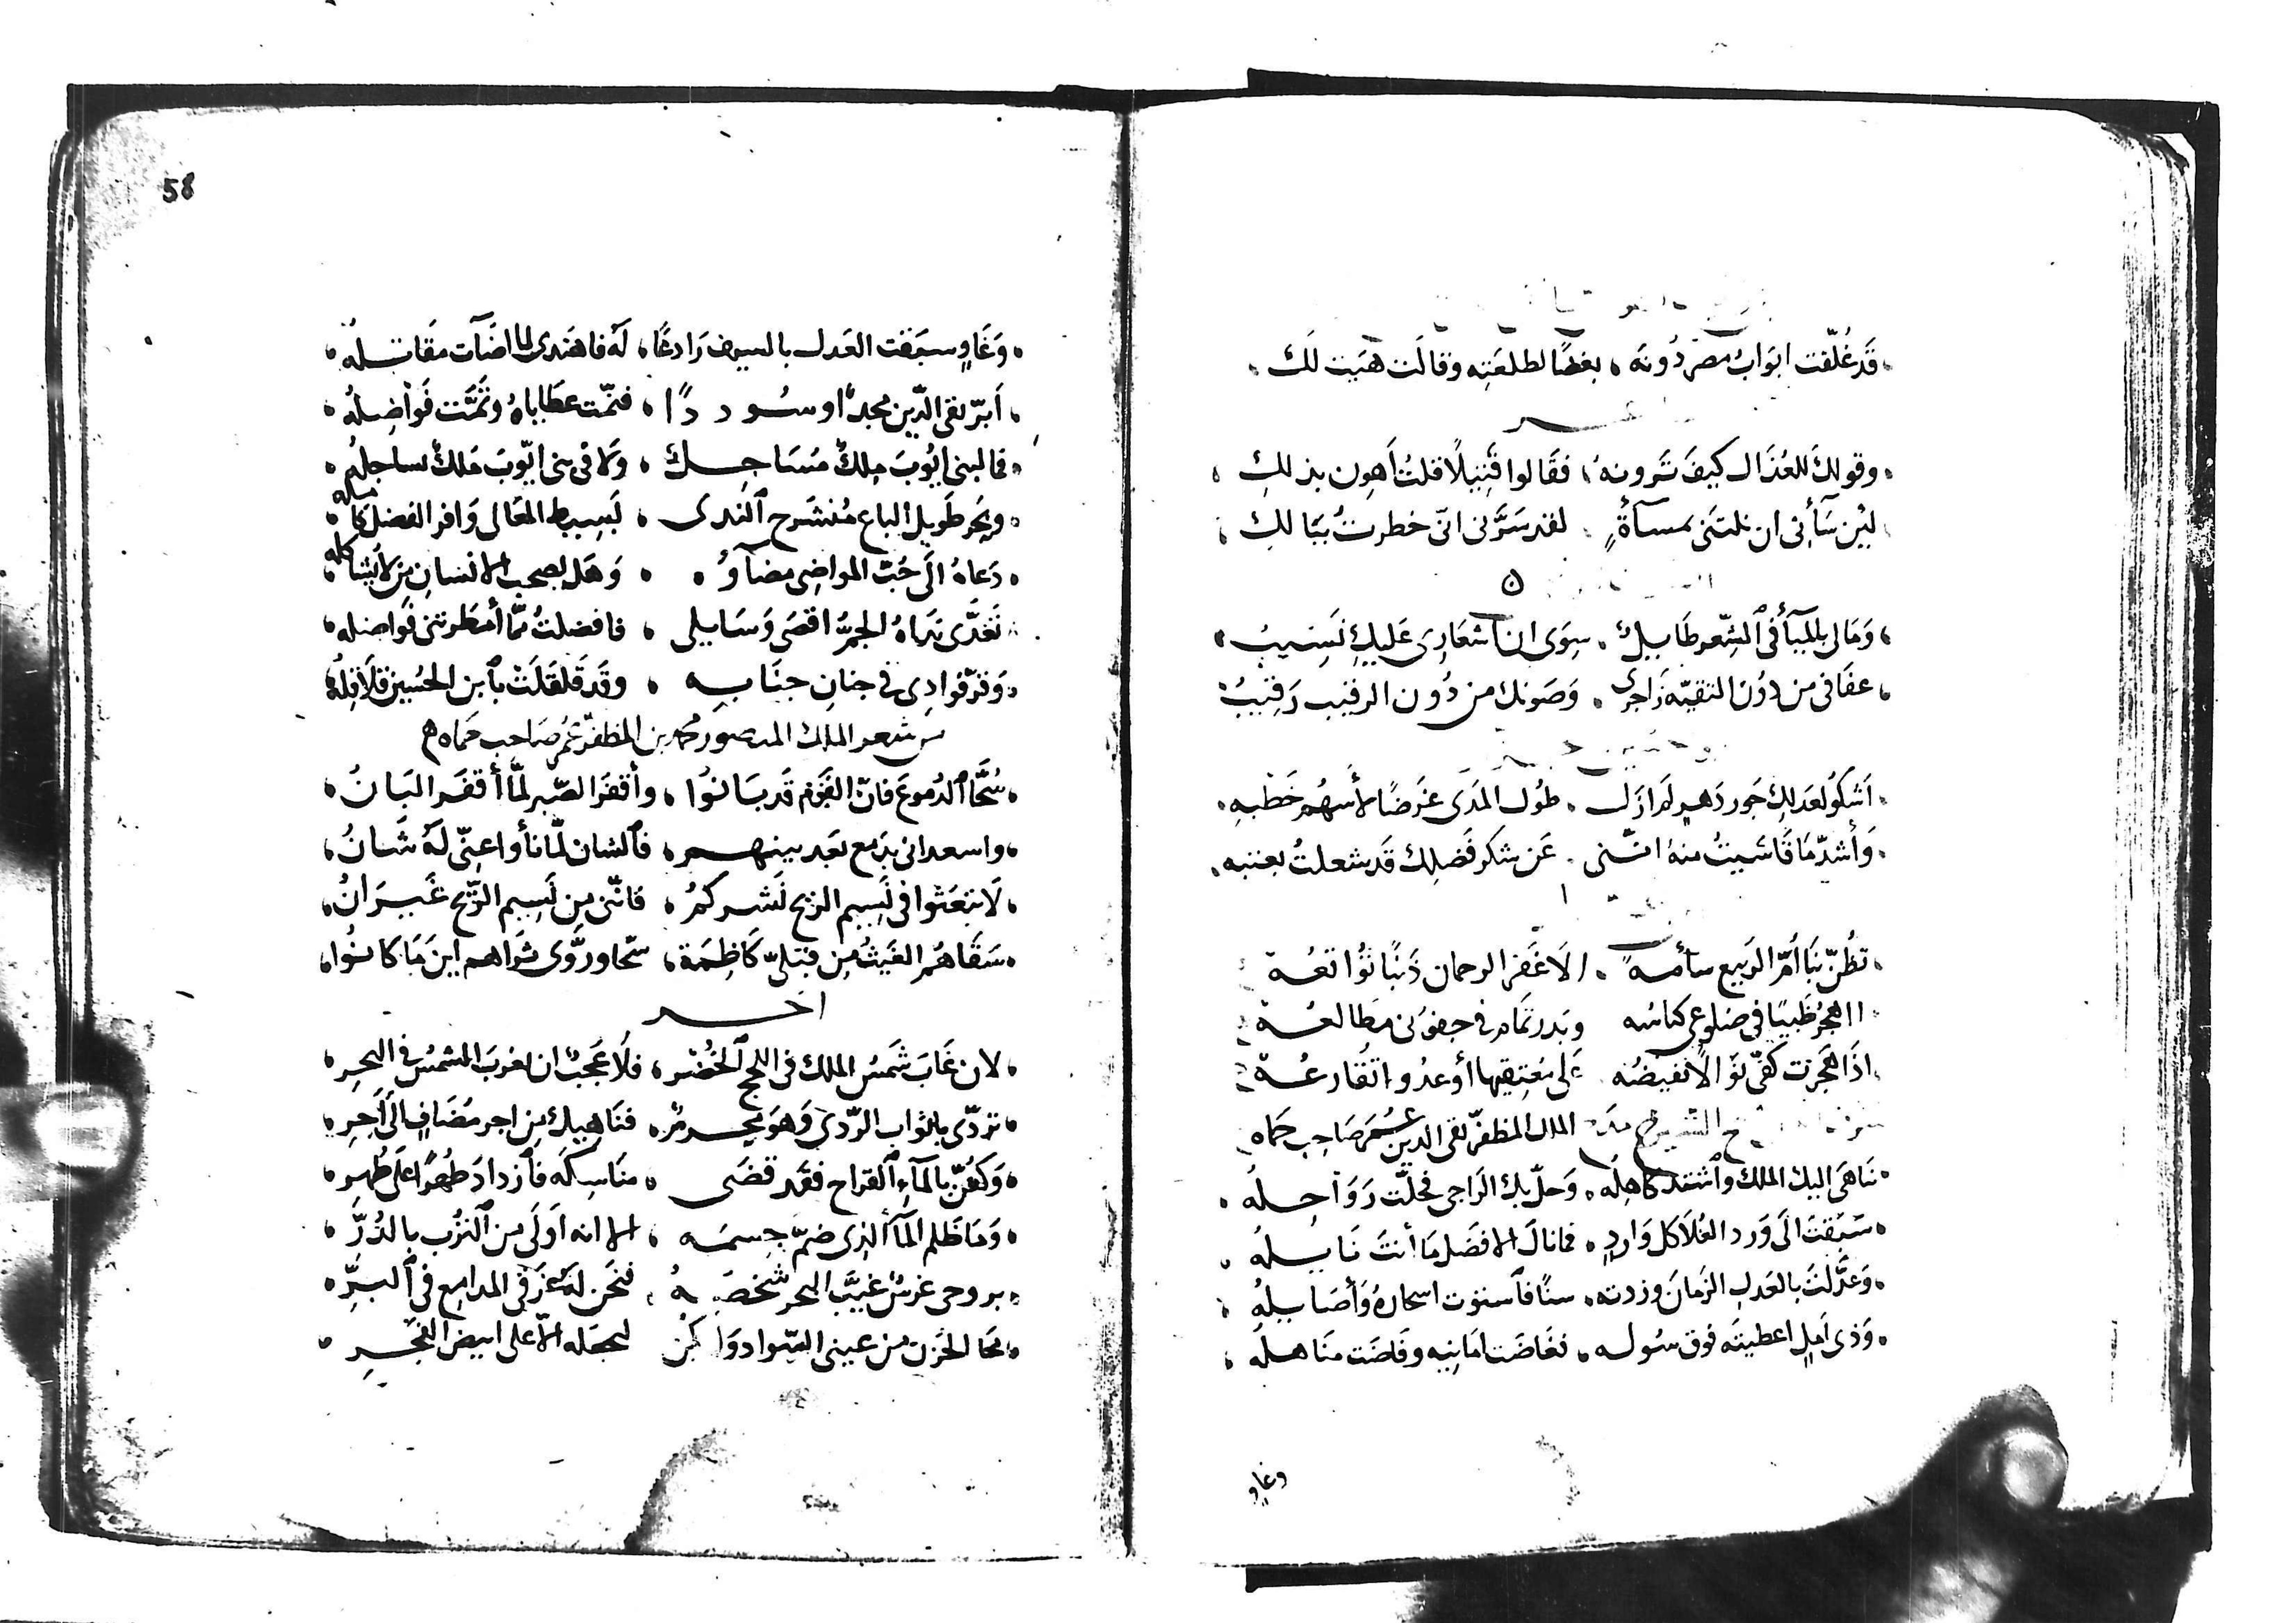 قَد غُلّقت ابَوَابُ مصرَ دُونَه ، بغضًا لطلعَتِه وقالَت هَيت لَكَ
وقولكَ للعُذال كيفَ تَرونهُ ، فقَالوا قَتِيلًا قلتُ أَهون بذلكِ
ليِن سَآئنى ان نلتَنى بمسآةٍ ، لقد سَرَّنى انّى خطرتُ ببَالكِ
وَمَالى بالمبَأ فى الشِعر طَايلٌ ، سِوَى ان اشعَارِى عَليكِ نَسِيبُ
عفَافى من دوُن التقيّه زَاجرى ، وَصَونك من دُون الرقيب رَقيبُ
اَشكو لعَدلكِ جَور دَهرٍ لم ازَل ، طوُل المَدَى غَرضًا لأسهُم خَطبهِ
وَأشدّ مَا قَاسَيتُ منهُ انّنى ، عَن شكر فَضلك قَد شغلتُ بعتبه
تظُنّ بنَا أمّ الربيع سأمةً ، الَا غَفَر الرحمان ذَنبًا تُوَاقعُه
ااهجرُ ظَبيًا فى ضلوعى كناسُه وبَدر تمَام فى جفوُنى مطَالعُه
اذَا هجَرت كفّى نوَالًا تفيضُه عَلى مُعتِفيها أو عدُوا تقَارعُه
الملك المظفّر تقى الدين عُمر صَاحِب حَماه
تنَاهَى اليك الملك واشتد كاهِلُه ، وَحلّ بك الرَاجى فحلّت رَوَاحِلُه
سَبَقتَ الَى وَرد العُلَا كل وَاردٍ ، فما نالَ الا فضلَ مَا أنتَ نَايلُه
وَعدَّلتَ بالعَدل الزمَانَ وزدته ، سنًا فاستوَت اسحَارهُ وَأصَايلُه
وَذى اَملٍ اعطيتَه فوق سُوله ، فغَاضَت امَانيِه وفَاضَت منَاهلُه
وغاوٍ
58
وَغَاوٍ سبَقت العَدل بالسيف رَادعًا ، لَهُ فاهتدى لما اضَآت مقَاتلُه
اَبرّ تقى الدّين مجدًا وسُوددًا ، فتمّت عطَاياهُ وتمَّت فَوَاضِلُه
فما لبنى ايّوبَ مِلكٌ مُسَاجِلٌ ، وَلا فى بنى ايّوبَ مَلكٌ يساجلُه
وبَحر طَويل الباع مُنشرح الندى ، بَسيط المعَالى وَافر الفضل كامله
دَعاهُ الَى حُبّ المواضِى مضَآوُهُ ، وَهَل يصحب الانسان مِن لا يُشاكله
تغدَّى ندَاهُ الجمّ اقصَى وَسَايلى ، فافضلتُ ممّا أمطَرتنى فَواضله
وَقرّ فوادِى فى جنانِ جنَابهِ ، وقَد قَلقلَتْ بابن الحُسين قلَاقِلُه
من شعر الملك المنصور محمد بن المظفّر عُمر صَاحب حمَاه
سُحَّا الدموعَ فانّ القَوم قَد بَانوُا ، وأقفرَ الصّبر لمَّا أقفَر البَانُ
واسعدانى بدَمع بعَد بينهم ، فالشان لمّا نأوا عنّى لَهُ شَانُ
لَا تبعَثوا فى نَسِيم الريح نَشركمُ ، فانّنى مِن نَسِيم الرّيح غَيرَانُ
سَقَاهُم الغَيثُ مِن قبَلىّ كَاظِمَة ، سحّا وروَّى ثرَاهم اينَ مَا كانُوا
اخر
لان غَابَ شَمسُ الملك فى اللجج الخُضْر ، فلَا عَجَبٌ ان تغربَ الشمسُ فى البحرِ
تردّى باثواب الرّدَى وَهوَ محرمٌ ، فنَاهِيك مِن اجر مُضَافٍ الَى اَجرِ
وَكفّن بالمآءِ القراح فقَد قضَى ، منَاسِكَه فازدادَ طُهرًا عَلى طُهرِ
وَمَا ظَلم المآ الذى ضمّ جسمَه ، الا انه اَولَى من التُرب بالدُرَّ
بروحى غرسٌ غيَّبَ البحر شخصَهُ ، فنحَن لَهُ غرقى المدامِع فى البرِّ
محَا الحُزن من عينى السّواد وَلم يكن ليحمله الّا على ابيض الفَجرِ